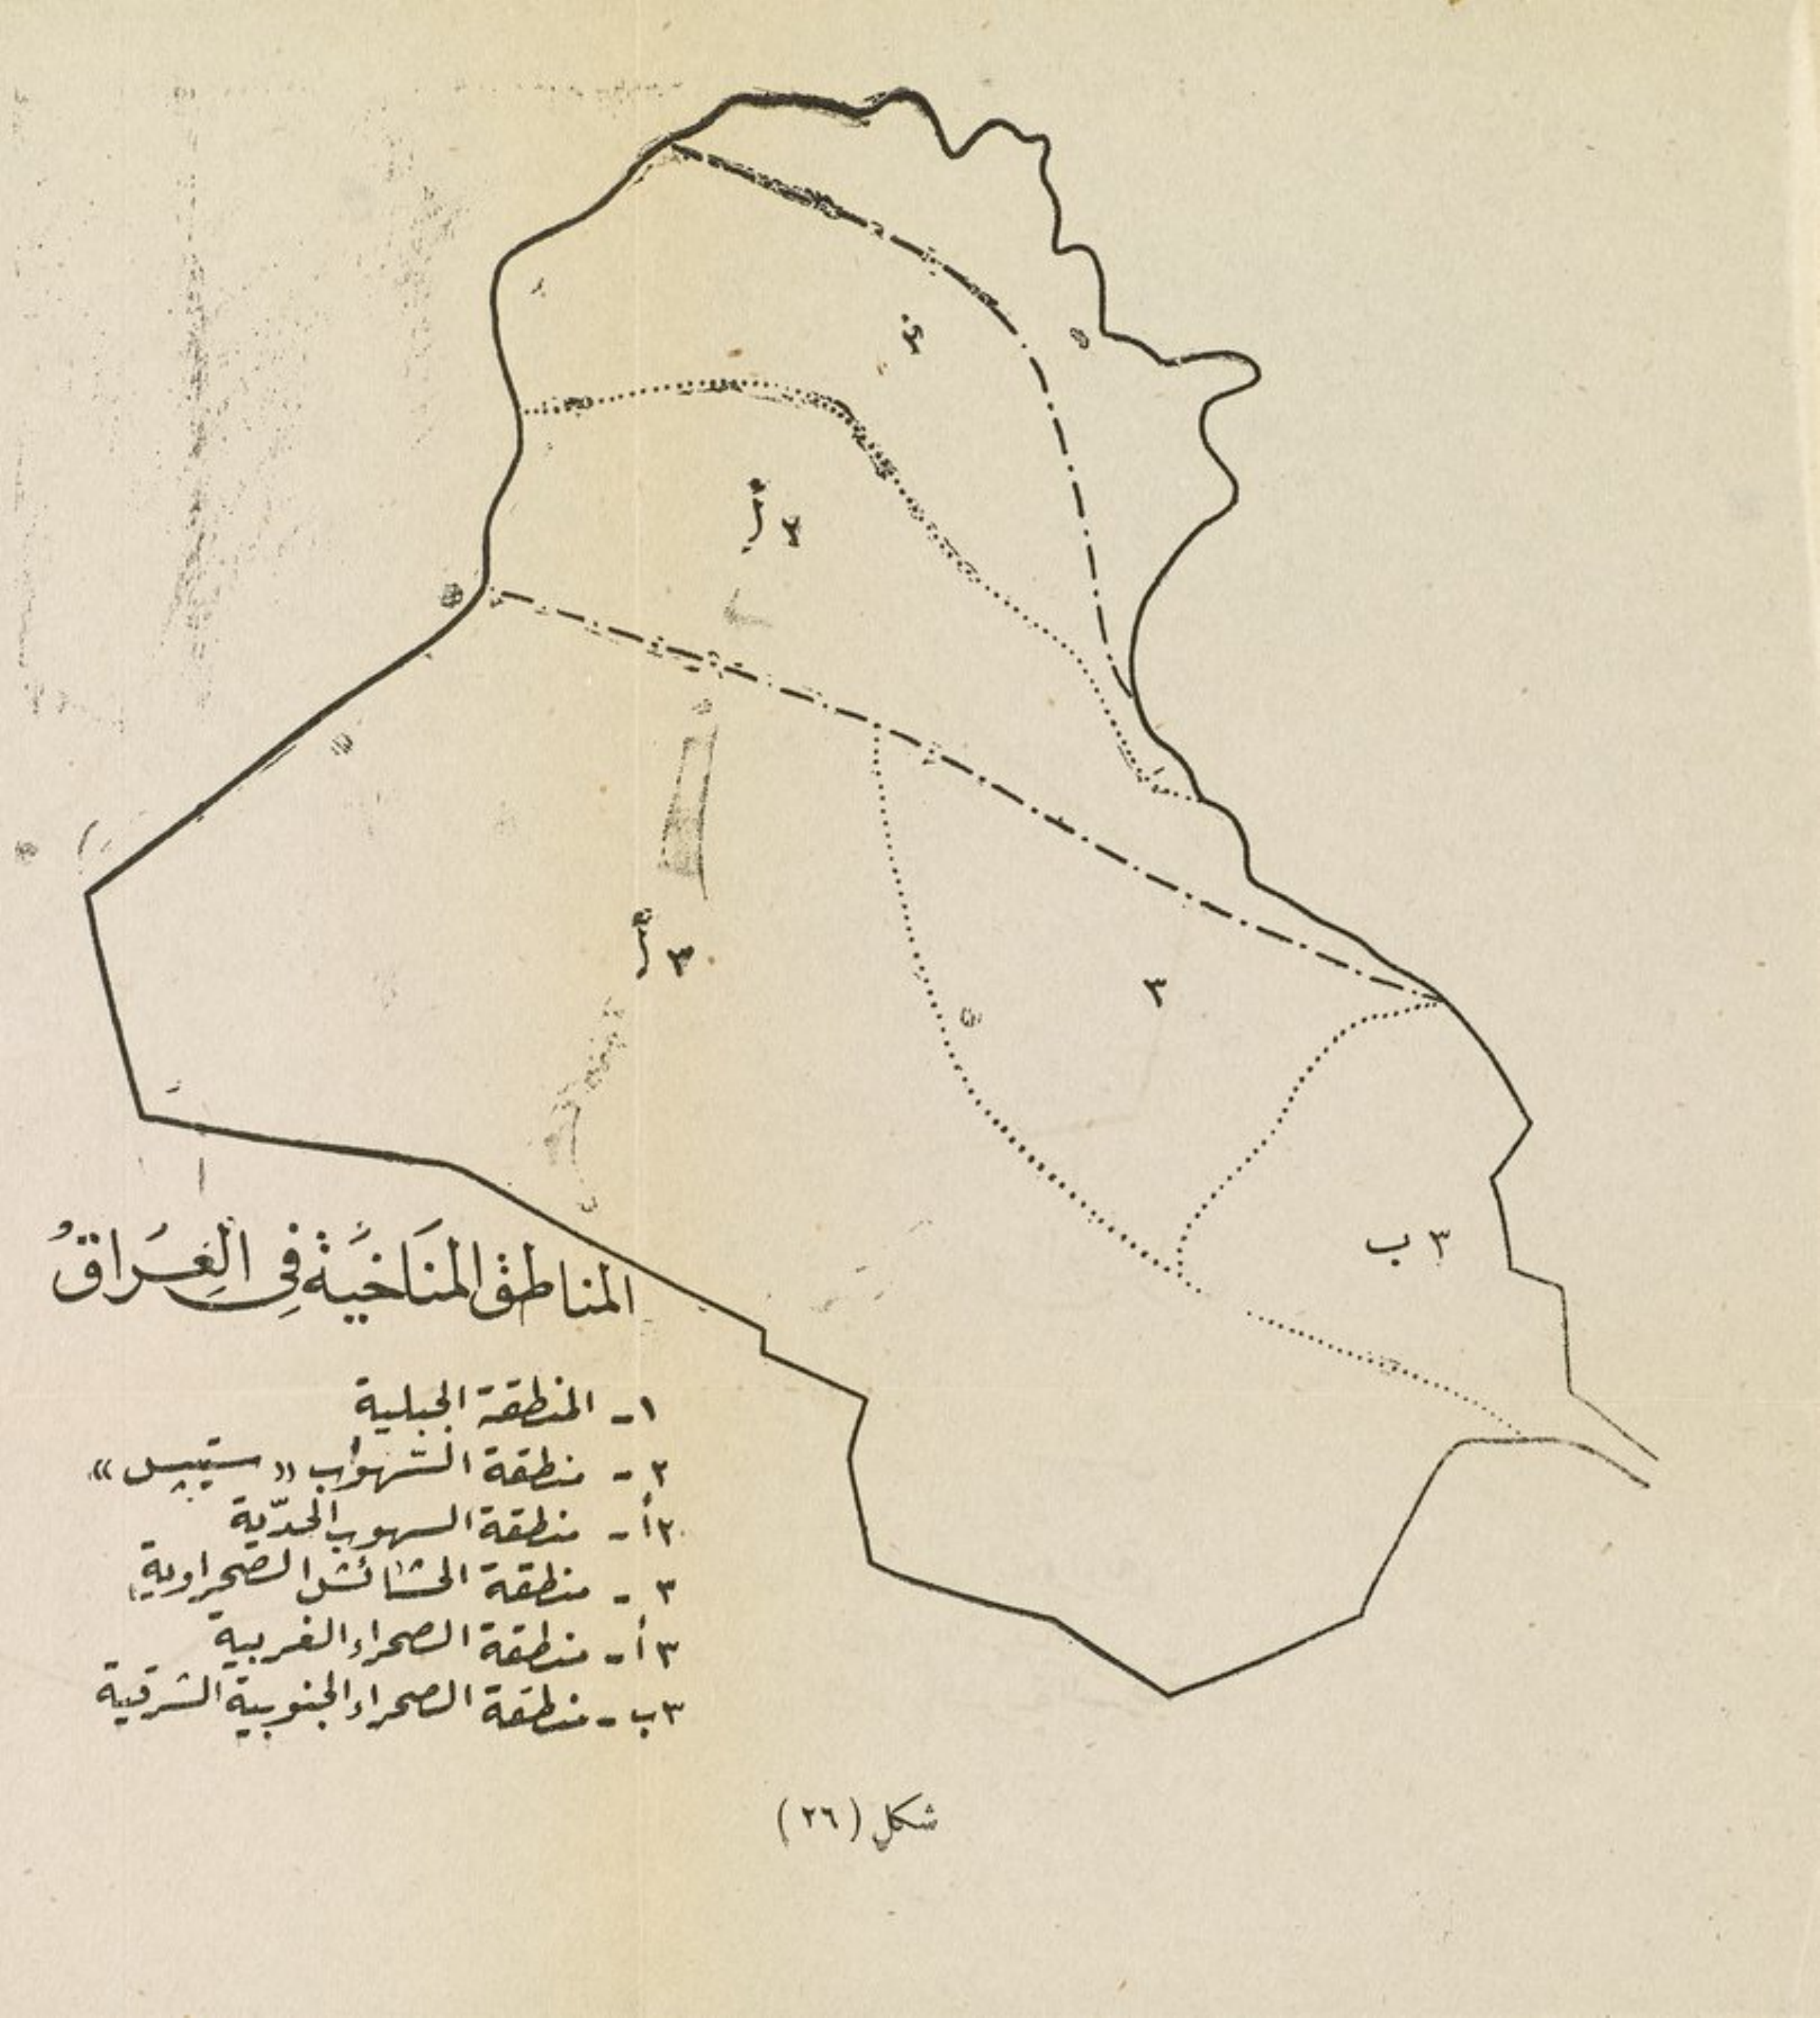 ٢أ
٣أ
٣
٣ ب
المناطق المناخية في العراق
١- المنطقة الجبلية
٢- منطقة السهوب « ستيبس »
٢أ- منطقة السهوب الحدّية
٣- منطقة الحشائش الصحراوية
٣أ- منطقة الصحراء الغربية
٣ب- منطقة الصحراء الجنوبية الشرقية
شكل (٢٦)